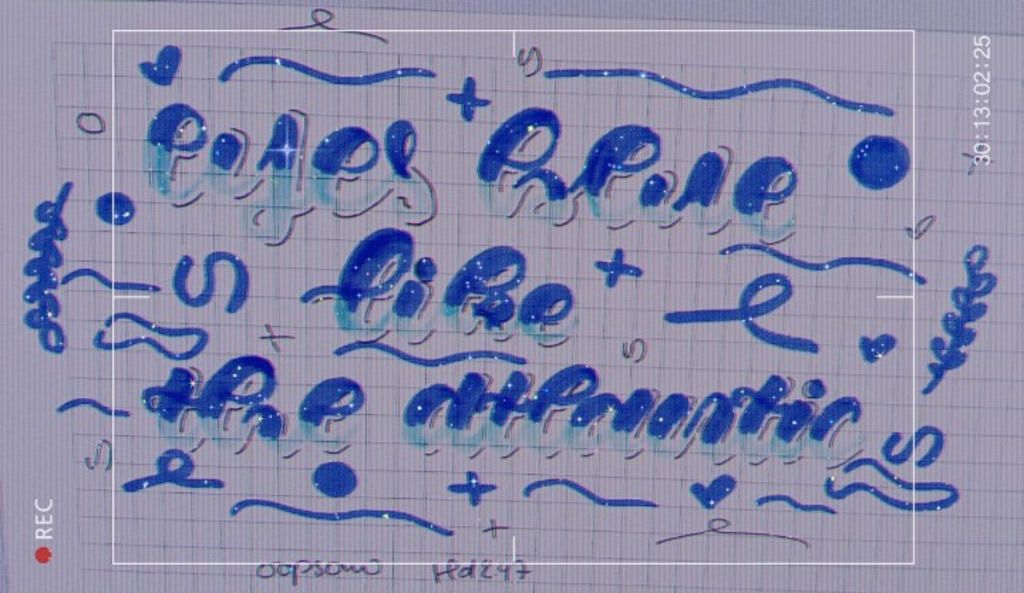 eyes blue
like
the atlantic
REC
30:13:02:25